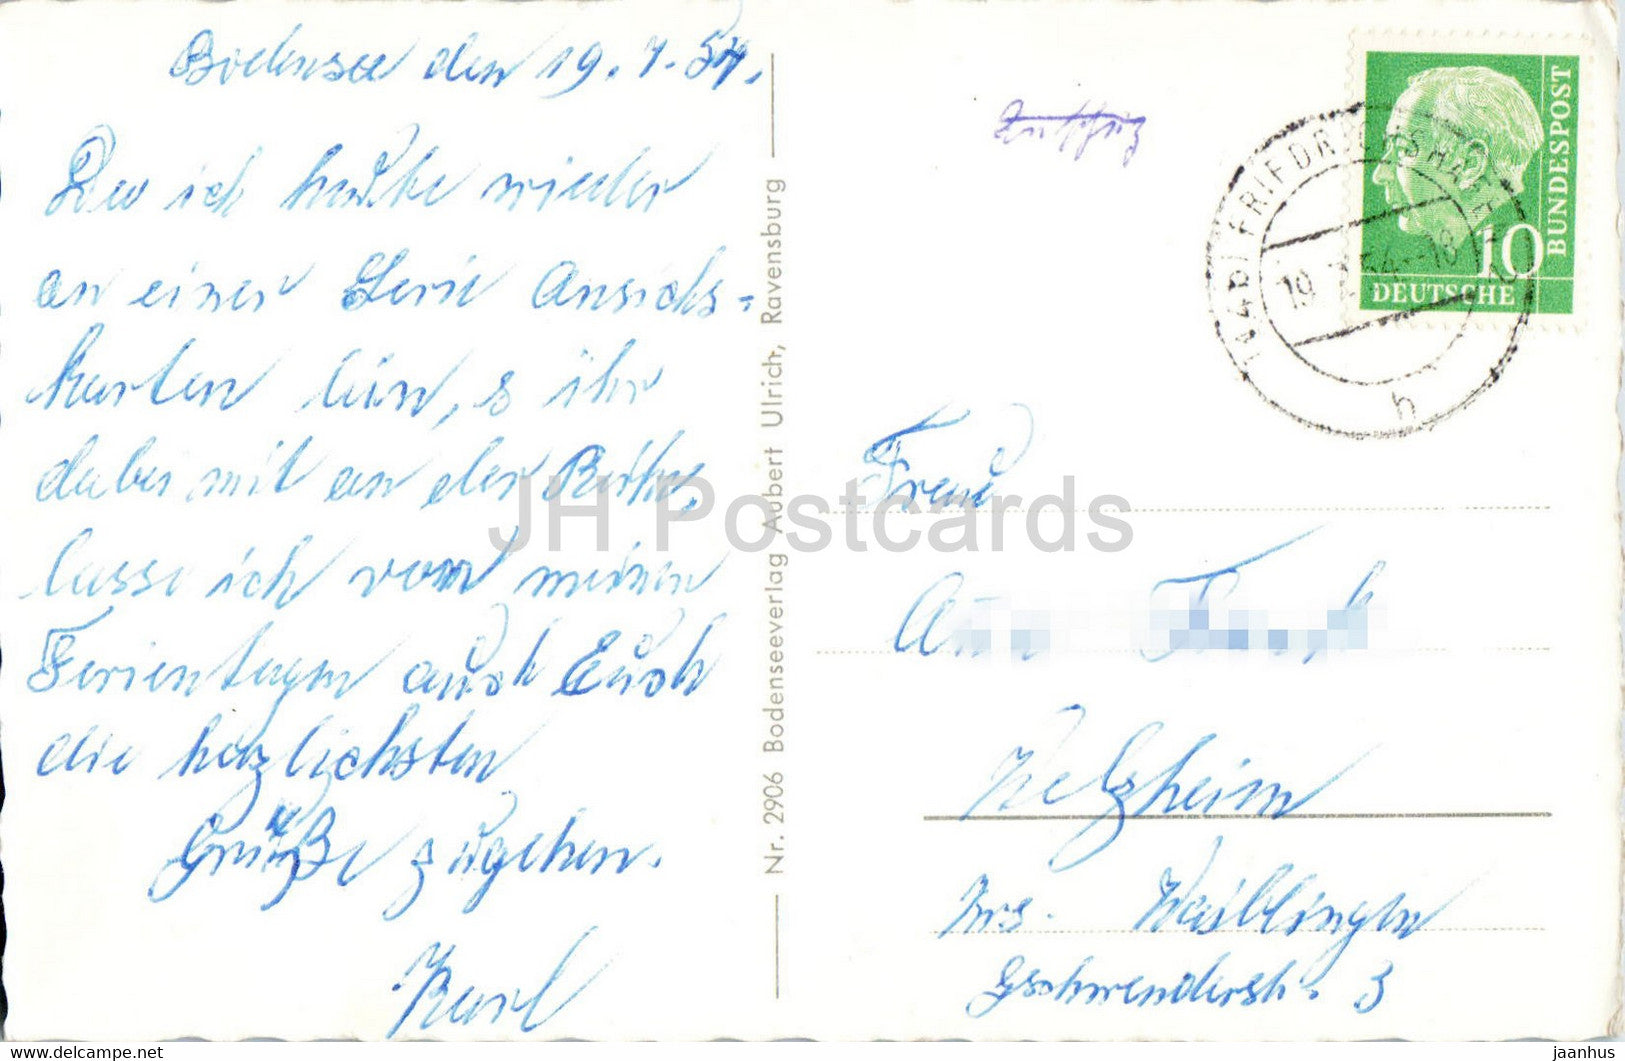 Bodensee den 19.7.54.
Da ich heute wieder
an einer Serie Ansichts=
karten bin, & ihr
dabei mit an der Reihe,
lasse ich von meinen
Ferientagen auch Euch
die herzlichsten
Grüße zugehen.
Karl
Nr. 2906 Bodenseeverlag Aubert Ulrich, Ravensburg
(14b) FRIEDRICHSHAFEN
19.7.54.-18
b
10
DEUTSCHE
BUNDESPOST
Frau
Welzheim
Krs. Waiblingen
Gschwenderstr. 3
JH Postcards
delcampe.net
jaanhus